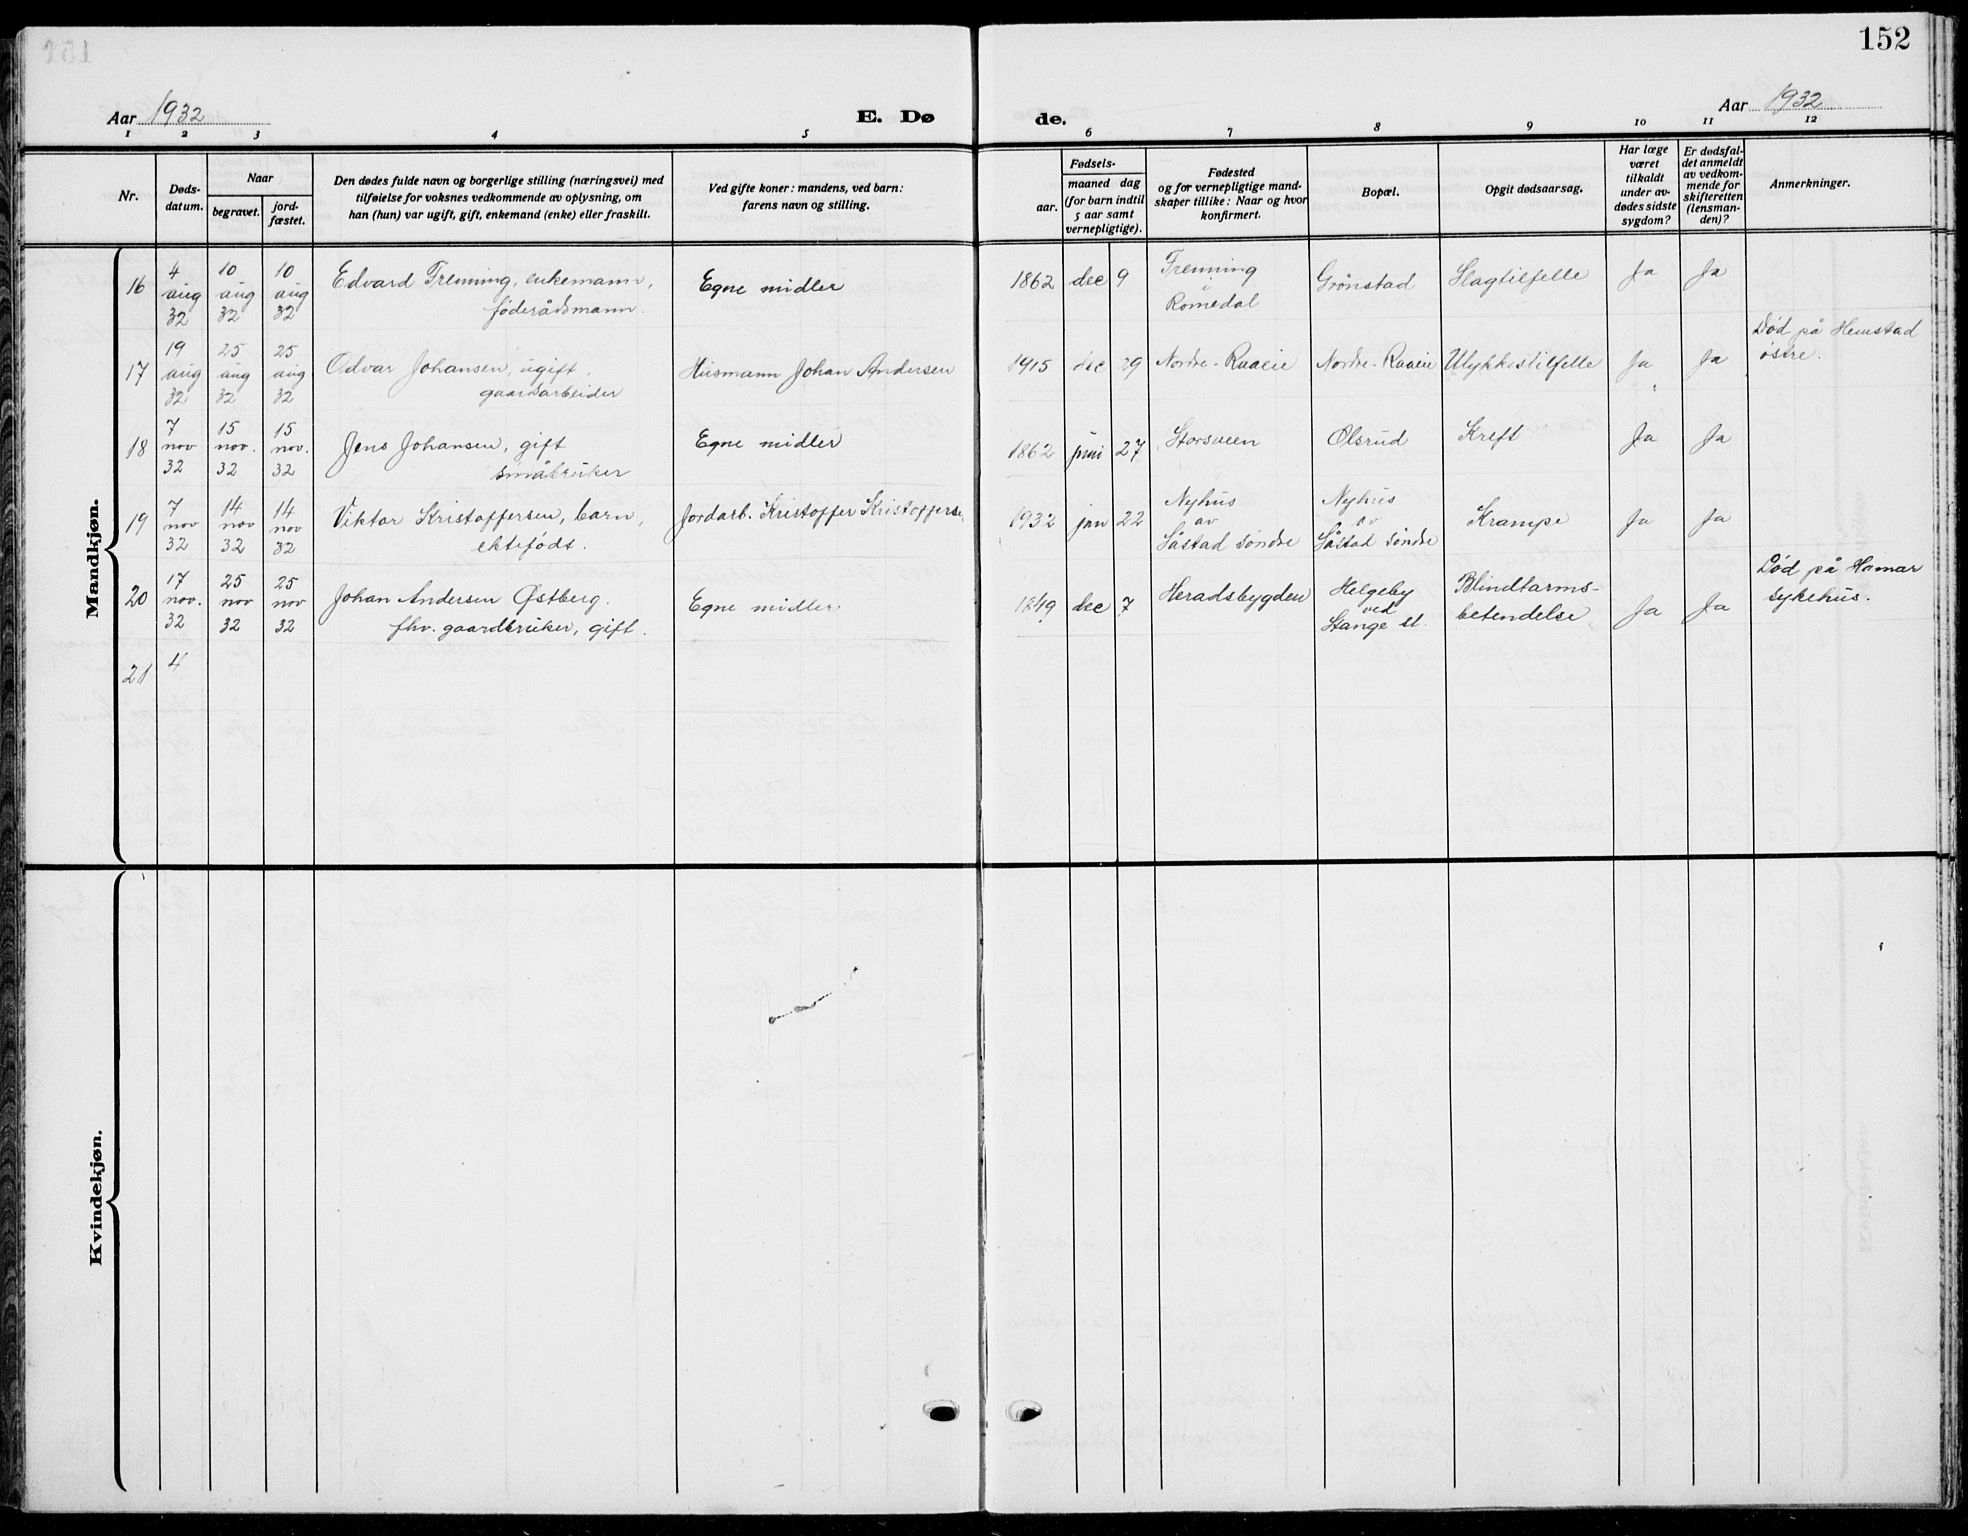 152
Aar 1932
E. Døde.
Aar 1932
1 2 3 4 5 6 7 8 9 10 11 12
Nr.
Døds-
datum.
Naar
begravet.
jord-
fæstet.
Den dødes fulde navn og borgerlige stilling (næringsvei) med
tilføielse for voksnes vedkommende av oplysning, om
han (hun) var ugift, gift, enkemand (enke) eller fraskilt.
Ved gifte koner: mandens, ved barn:
farens navn og stilling.
Fødsels-
aar.
maaned dag
(for barn indtil
5 aar samt
vernepligtige).
Fødested
og for vernepligtige mand-
skaper tillike: Naar og hvor
konfirmert.
Bopæl.
Opgit dødsaarsag.
Har læge
været
tilkaldt
under av-
dødes sidste
sygdom?
Er dødsfal-
det anmeldt
av vedkom-
mende for
skifteretten
(lensman-
den)?
Anmerkninger.
Mandkjøn.
16
4 aug 32
10 aug 32
10 aug 32
Edvard Frenning, enkemann,
føderådsmann.
Egne midler
1862 dec 9
Frenning
i
Romedal
Grønstad
Slagtilfelle
Ja
Ja
17
19 aug 32
25 aug 32
25 aug 32
Odvar Johansen, ugift,
gaardsarbeider
Husmann Johan Andersen
1915 dec 29
Nordre-Raaeie
Nordre-Raaeie
Ulykkestilfelle
Ja
Ja
Død på Hemstad
østre.
18
7 nov 32
15 nov. 32
15 nov. 32
Jens Johansen, gift
småbruker
Egne midler
1862 juni 27
Storsveen
Olsrud
Kreft
Ja
Ja
19
7 nov 32
14 nov 32
14 nov 32
Viktor Kristoffersen, barn,
ektefødt.
Jordarb. Kristoffer Kristofferse
1932 jan 22
Nyhus
av
Såstad søndre
Nyhus
av
Såstad søndre
Krampe
Ja
Ja
20
17 nov. 32
25 nov 32
25 nov 32
Johan Andersen Østberg.
fhv. gaardbruker, gift.
Egne midler
1849 dec 7
Heradsbygden
Helgeby
ved
Stange st.
Blindtarms-
betendelse
Ja
Ja
Død på Hamar
sykehus.
21
4
Kvindekjøn.